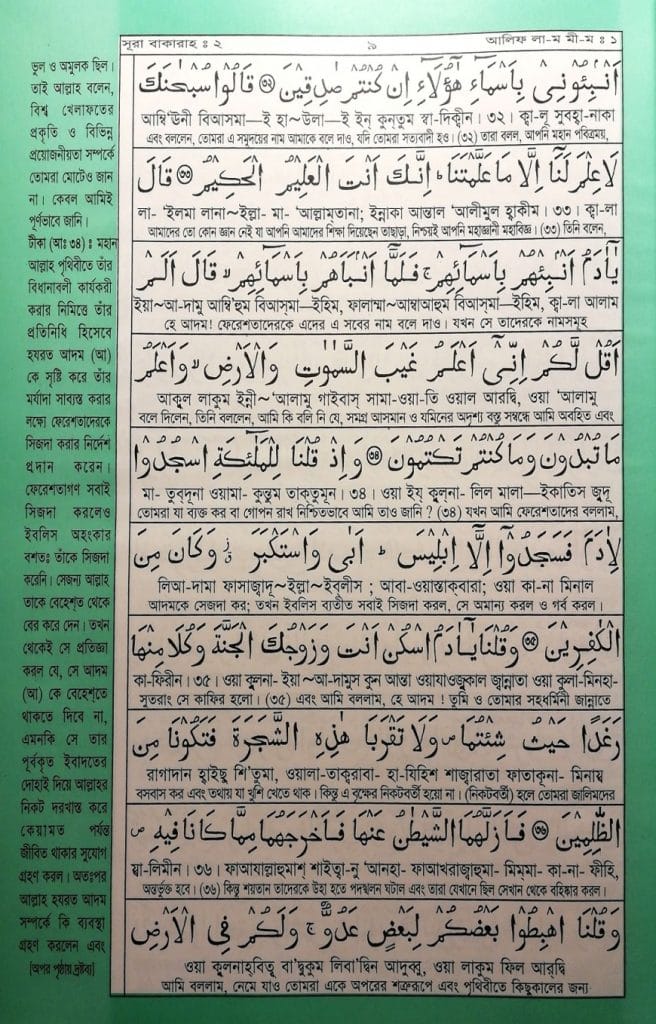 সূরা বাকারাহ : ২
৯
আলিফ লা-ম মী-ম : ১
اَنْۢبِئُوْنِيْ بِاَسْمَآءِ هٰٓؤُلَآءِ اِنْ كُنْتُمْ صٰدِقِيْنَ ۝٣٢ قَالُوْا سُبْحٰنَكَ
আম্বি'ঊনী বিআসমা—ই হা~উলা—ই ইন্ কুন্তুম স্বা-দিক্বীন। ৩২। ক্বা-লূ সুবহ্বা-নাকা
এবং বললেন, তোমরা এ সমুদয়ের নাম আমাকে বলে দাও, যদি তোমরা সত্যবাদী হও। (৩২) তারা বলল, আপনি মহান পবিত্রময়,
لَاعِلْمَ لَنَآ اِلَّا مَا عَلَّمْتَنَا ؕ اِنَّكَ اَنْتَ الْعَلِيْمُ الْحَكِيْمُ ۝٣٣ قَالَ
লা- 'ইলমা লানা~ইল্লা- মা- 'আল্লাম্তানা; ইন্নাকা আন্তাল 'আলীমুল হ্বাকীম। ৩৩। ক্বা-লা
আমাদের তো কোন জ্ঞান নেই যা আপনি আমাদের শিক্ষা দিয়েছেন তাছাড়া, নিশ্চয়ই আপনি মহাজ্ঞানী মহাবিজ্ঞ। (৩৩) তিনি বলেন,
يٰٓاٰدَمُ اَنْۢبِئْهُمْ بِاَسْمَآئِهِمْ ۚ فَلَمَّآ اَنْۢبَاَهُمْ بِاَسْمَآئِهِمْ ۙ قَالَ اَلَمْ
ইয়া~আ-দামু আম্বি'হুম বিআস্মা—ইহিম, ফালাম্মা~আম্বাআহুম বিআস্মা—ইহিম, ক্বা-লা আলাম
হে আদম! ফেরেশতাদেরকে এদের এ সবের নাম বলে দাও। যখন সে তাদেরকে নামসমূহ
اَقُلْ لَّكُمْ اِنِّيْٓ اَعْلَمُ غَيْبَ السَّمٰوٰتِ وَالْاَرْضِ ۙ وَاَعْلَمُ
আক্বুল লাকুম ইন্নী~'আলামু গাইবাস্ সামা-ওয়া-তি ওয়াল আরদ্বি, ওয়া 'আলামু
বলে দিলেন, তিনি বললেন, আমি কি বলি নি যে, সমগ্র আসমান ও যমিনের অদৃশ্য বস্তু সম্বন্ধে আমি অবহিত এবং
مَا تُبْدُوْنَ وَمَا كُنْتُمْ تَكْتُمُوْنَ ۝٣٤ وَاِذْ قُلْنَا لِلْمَلٰٓئِكَةِ اسْجُدُوْا
মা- তুব্দূনা ওয়ামা- কুন্তুম তাক্তুমূন। ৩৪। ওয়া ইয্ কুল্না- লিল মালা—ইকাতিস জুদূ
তোমরা যা ব্যক্ত কর বা গোপন রাখ নিশ্চিতভাবে আমি তাও জানি ? (৩৪) যখন আমি ফেরেশতাদের বললাম,
لِاٰدَمَ فَسَجَدُوْٓا اِلَّآ اِبْلِيْسَ ؕ اَبٰى وَاسْتَكْبَرَ ؗ وَكَانَ مِنَ
লিআ-দামা ফাসাজ্বাদূ~ইল্লা~ইব্লীস ; আবা-ওয়াস্তাক্বারা; ওয়া কা-না মিনাল
আদমকে সেজদা কর; তখন ইবলিস ব্যতীত সবাই সিজদা করল, সে অমান্য করল ও গর্ব করল।
الْكٰفِرِيْنَ ۝٣٥ وَقُلْنَا يٰٓاٰدَمُ اسْكُنْ اَنْتَ وَزَوْجُكَ الْجَنَّةَ وَكُلَا مِنْهَا
কা-ফিরীন। ৩৫। ওয়া ক্বুলনা- ইয়া~আ-দামুস কুন আন্তা ওয়াযাওজ্বুকাল জ্বান্নাতা ওয়া কুলা-মিনহা-
সুতরাং সে কাফির হলো। (৩৫) এবং আমি বললাম, হে আদম ! তুমি ও তোমার সহধর্মিনী জান্নাতে
رَغَدًا حَيْثُ شِئْتُمَا ص وَلَا تَقْرَبَا هٰذِهِ الشَّجَرَةَ فَتَكُوْنَا مِنَ
রাগাদান হ্বাইছু শি'তুমা, ওয়ালা-তাক্বরাবা- হা-যিহিশ শাজ্বারাতা ফাতাকূনা- মিনায্ব
বসবাস কর এবং তথায় যা খুশি খেতে থাক। কিন্তু এ বৃক্ষের নিকটবর্তী হয়ো না। (নিকটবর্তী) হলে তোমরা জালিমদের
الظّٰلِمِيْنَ ۝٣٦ فَاَزَلَّهُمَا الشَّيْطٰنُ عَنْهَا فَاَخْرَجَهُمَا مِمَّا كَانَا فِيْهِ ص
য্বা-লিমীন। ৩৬। ফাআযাল্লাহুমাশ্ শাইত্বা-নু 'আনহা- ফাআখরাজ্বাহুমা- মিম্মা- কা-না- ফীহি,
অন্তর্ভুক্ত হবে। (৩৬) কিন্তু শয়তান তাদেরকে উহা হতে পদস্খলন ঘটাল এবং তারা যেখানে ছিল সেখান থেকে বহিষ্কার করল।
وَقُلْنَا اهْبِطُوْا بَعْضُكُمْ لِبَعْضٍ عَدُوٌّ ۚ وَلَكُمْ فِي الْاَرْضِ
ওয়া ক্বুলনাহ্বিত্বূ বা'দ্বুকুম লিবা'দ্বিন আদুব্বু, ওয়া লাকুম ফিল আর্দ্বি
আমি বললাম, নেমে যাও তোমরা একে অপরের শত্রুরূপে এবং পৃথিবীতে কিছুকালের জন্য
ভুল ও অমুলক ছিল।
তাই আল্লাহ বলেন,
বিশ্ব খেলাফতের
প্রকৃতি ও বিভিন্ন
প্রয়োজনীয়তা সম্পর্কে
তোমরা মোটেও জান
না। কেবল আমিই
পূর্ণভাবে জানি।
টীকা (আঃ ৩৪) : মহান
আল্লাহ পৃথিবীতে তাঁর
বিধানাবলী কার্যকরী
করার নিমিত্তে তাঁর
প্রতিনিধি হিসেবে
হযরত আদম (আ)
কে সৃষ্টি করে তাঁর
মর্যাদা সাব্যস্ত করার
লক্ষ্যে ফেরেশতাদেরকে
সিজদা করার নির্দেশ
প্রদান করেন।
ফেরেশতাগণ সবাই
সিজদা করলেও
ইবলিস অহংকার
বশতঃ তাঁকে সিজদা
করেনি। সেজন্য আল্লাহ
তাকে বেহেশ্ত থেকে
বের করে দেন। তখন
থেকেই সে প্রতিজ্ঞা
করল যে, সে আদম
(আ) কে বেহেশ্তে
থাকতে দিবে না,
এমনকি সে তার
পূর্বকৃত ইবাদতের
দোহাই দিয়ে আল্লাহর
নিকট দরখাস্ত করে
কেয়ামত পর্যন্ত
জীবিত থাকার সুযোগ
গ্রহণ করল। অতঃপর
আল্লাহ হযরত আদম
সম্পর্কে কি ব্যবস্থা
গ্রহণ করলেন এবং
[অপর পৃষ্ঠায় দ্রষ্টব্য]